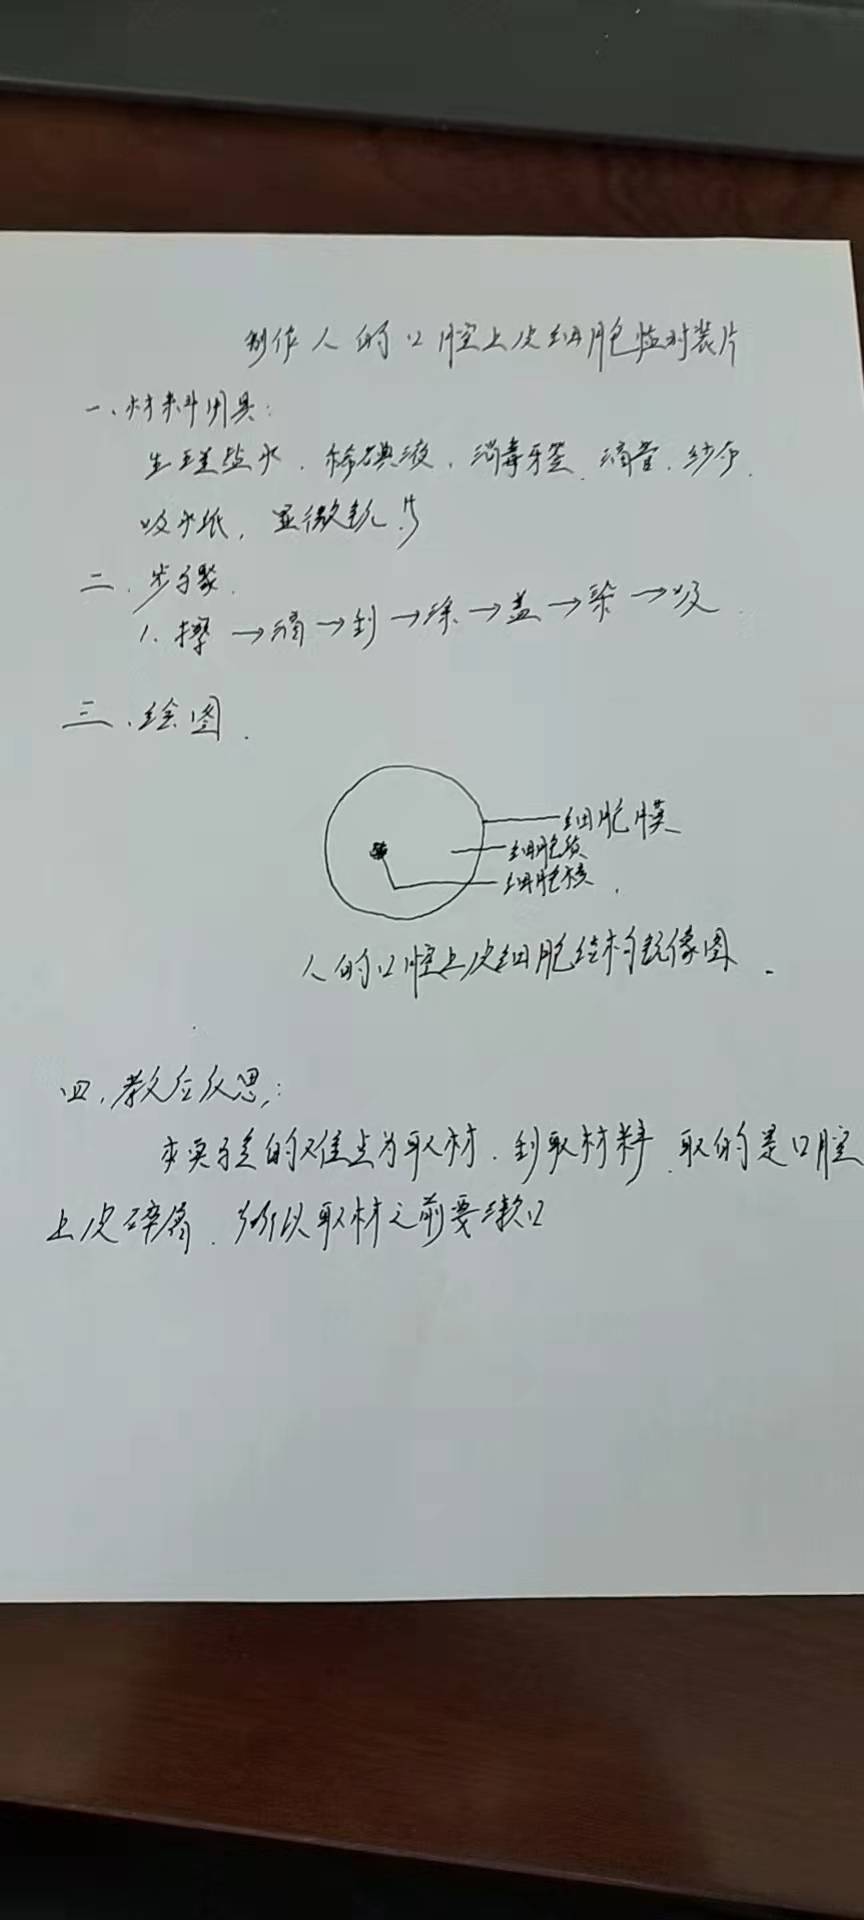 制作人的口腔上皮细胞临时装片
一、材料用具:
生理盐水、稀碘液、消毒牙签、滴管、纱布、
吸水纸、显微镜
二、步骤
1. 擦→滴→刮→涂→盖→染→吸
三、绘图
细胞膜
细胞质
细胞核
人的口腔上皮细胞结构镜像图
四、教后反思:
本实验的难点为取材、刮取材料、取的是口腔
上皮碎屑、所以取材之前要漱口